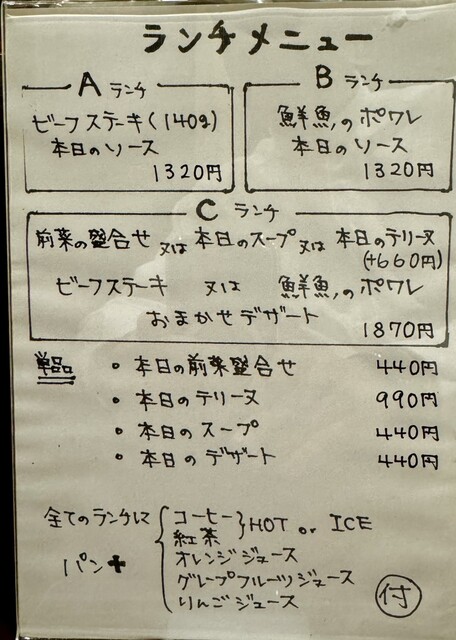 ランチメニュー
A ランチ
ビーフステーキ(140g)
本日のソース
1320円
B ランチ
鮮魚のポワレ
本日のソース
1320円
C ランチ
前菜の盛合せ 又は 本日のスープ 又は 本日のテリーヌ
(+660円)
ビーフステーキ 又は 鮮魚のポワレ
おまかせデザート
1870円
単品 • 本日の前菜盛合せ 440円
• 本日のテリーヌ 990円
• 本日のスープ 440円
• 本日のデザート 440円
全てのランチに
パン+
コーヒー
紅茶
HOT or ICE
オレンジジュース
グレープフルーツジュース
りんごジュース
付